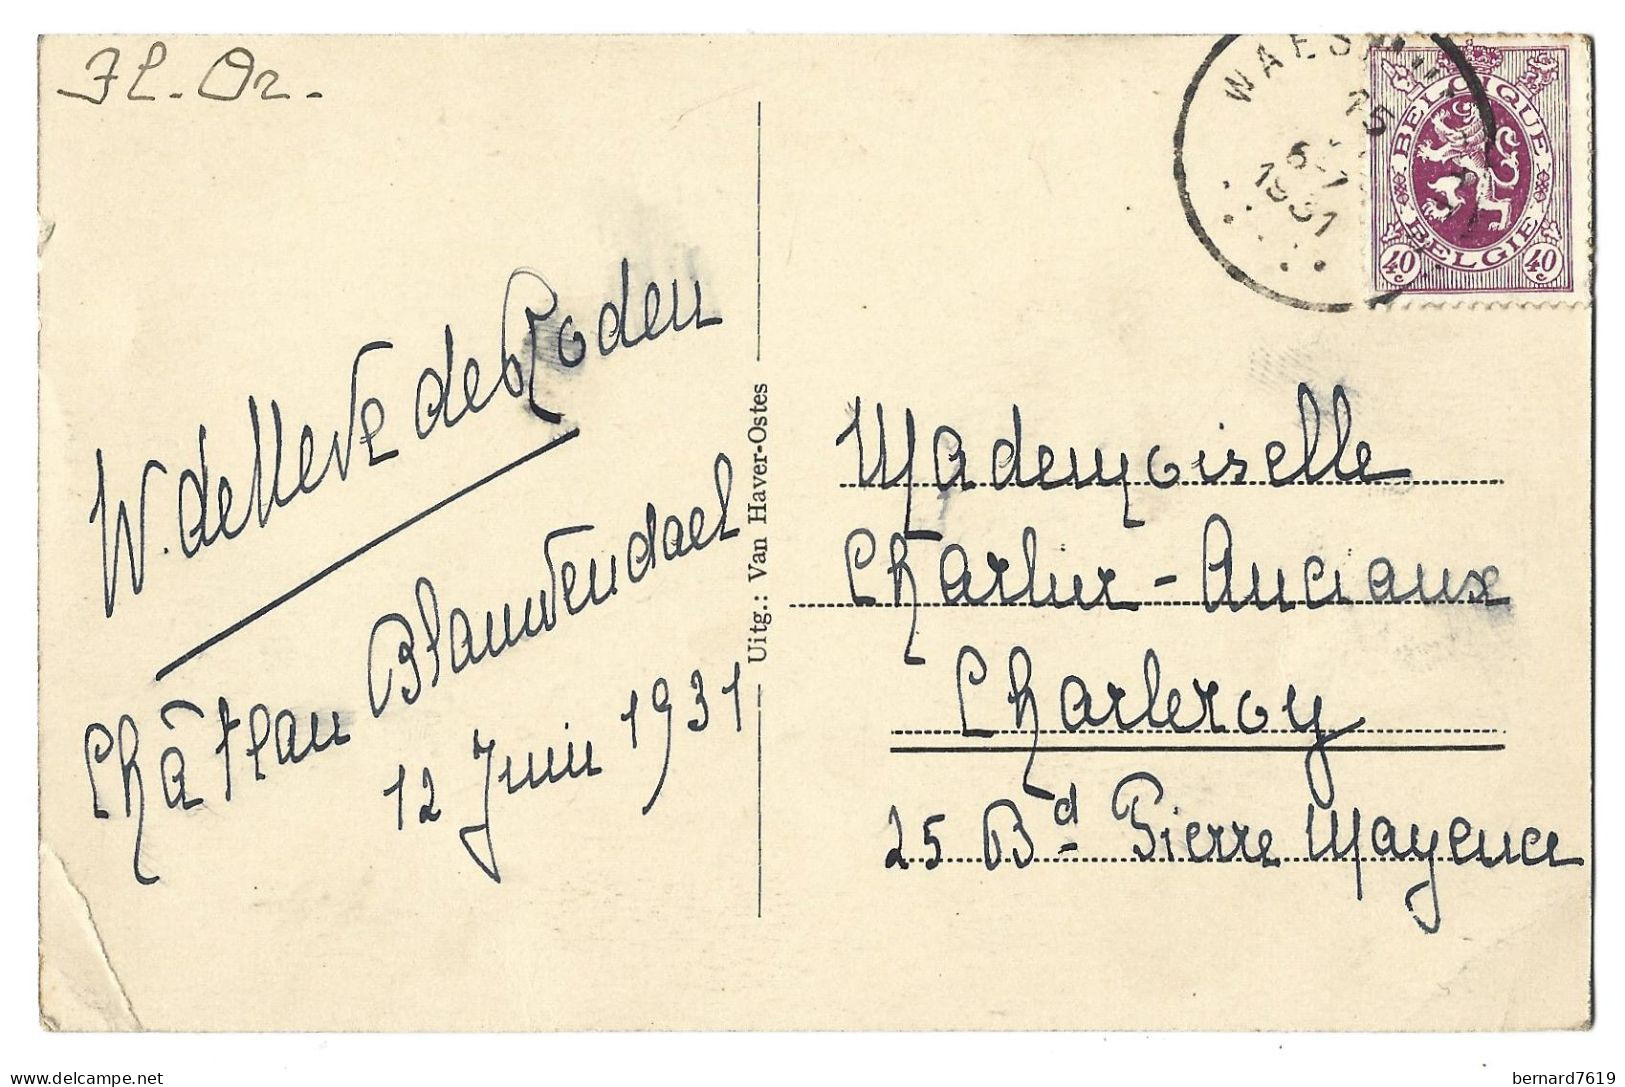 Fl. Or.
W. de Neve de Roden
Château Blauwendael
12 Juin 1931
Uitg.: Van Haver-Ostes
WAESM
15
1931
BELGIQUE
BELGIË
40 c
40 c
Mademoiselle
Charlier - Anciaux
Charleroy
25 Bd Pierre Mayence
bernard7619